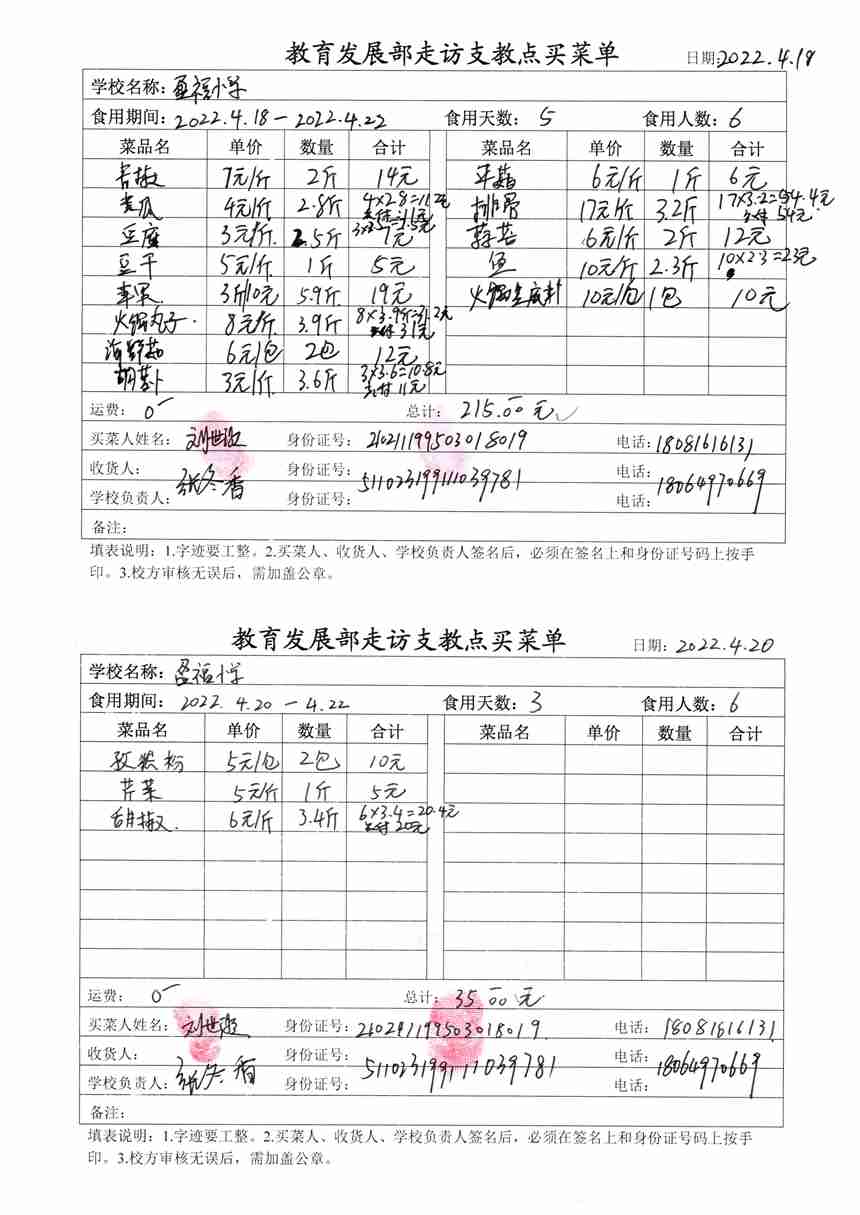 教育发展部走访支教点买菜单 日期:2022.4.18
学校名称: 盈福小学
食用期间: 2022.4.18-2022.4.22 食用天数: 5 食用人数: 6
菜品名 单价 数量 合计 菜品名 单价 数量 合计
青椒 7元/斤 2斤 14元 平菇 6元/斤 1斤 6元
黄瓜 4元/斤 2.8斤 4×2.8=11.2元 实付:11元 排骨 17元/斤 3.2斤 17×3.2=54.4元 实付 54元
豆腐 3元/斤. 2.5斤 3×2.5=7.5元 7元 蒜苔 6元/斤 2斤 12元
豆干 5元/斤 1斤 5元 鱼 10元/斤 2.3斤 10×2.3=23元
苹果 3斤/10元 5.9斤 19元 火锅底料 10元/包 1包 10元
火锅丸子. 8元/斤. 3.9斤 8×3.9斤=31.2元 实付31元
海鲜菇 6元/包 2包 12元
胡萝卜 3元/斤. 3.6斤 3×3.6=10.8元 实付11元
运费: 0 总计: 215.00元
买菜人姓名: 身份证号: 210211199503018019 电话: 18081616131
收货人: 张冬香 身份证号: 511023199111039781 电话: 18064970669
学校负责人: 身份证号: 电话:
备注:
填表说明：1.字迹要工整。2.买菜人、收货人、学校负责人签名后，必须在签名上和身份证号码上按手
印。3.校方审核无误后，需加盖公章。
教育发展部走访支教点买菜单 日期: 2022.4.20
学校名称: 盈福小学
食用期间: 2022.4.20-4.22 食用天数: 3 食用人数: 6
菜品名 单价 数量 合计 菜品名 单价 数量 合计
孜然粉 5元/包 2包 10元
芹菜 5元/斤 1斤 5元
青椒. 6元/斤 3.4斤 6×3.4=20.4元 实付20元
运费: 0 总计: 35.00元
买菜人姓名: 身份证号: 电话: 18081616131
收货人: 张冬香 身份证号: 511023199111039781 电话: 18064970669
学校负责人: 身份证号: 电话:
备注:
填表说明：1.字迹要工整。2.买菜人、收货人、学校负责人签名后，必须在签名上和身份证号码上按手
印。3.校方审核无误后，需加盖公章。